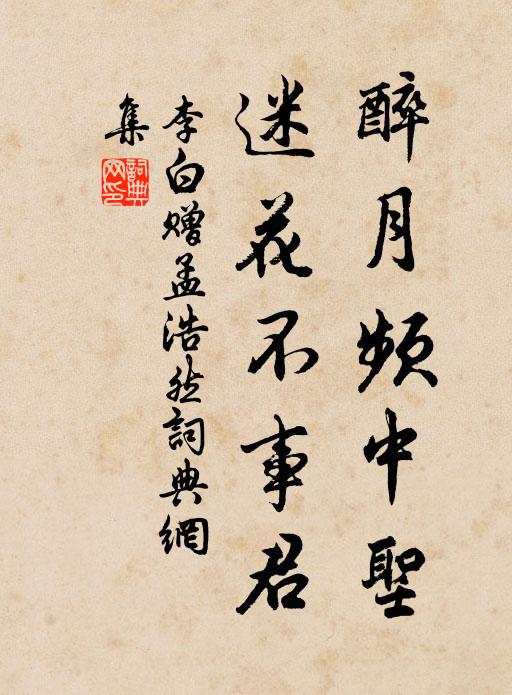 醉月頻中聖
迷花不事君
李白赠孟浩然詞典網
集
詞典
网印